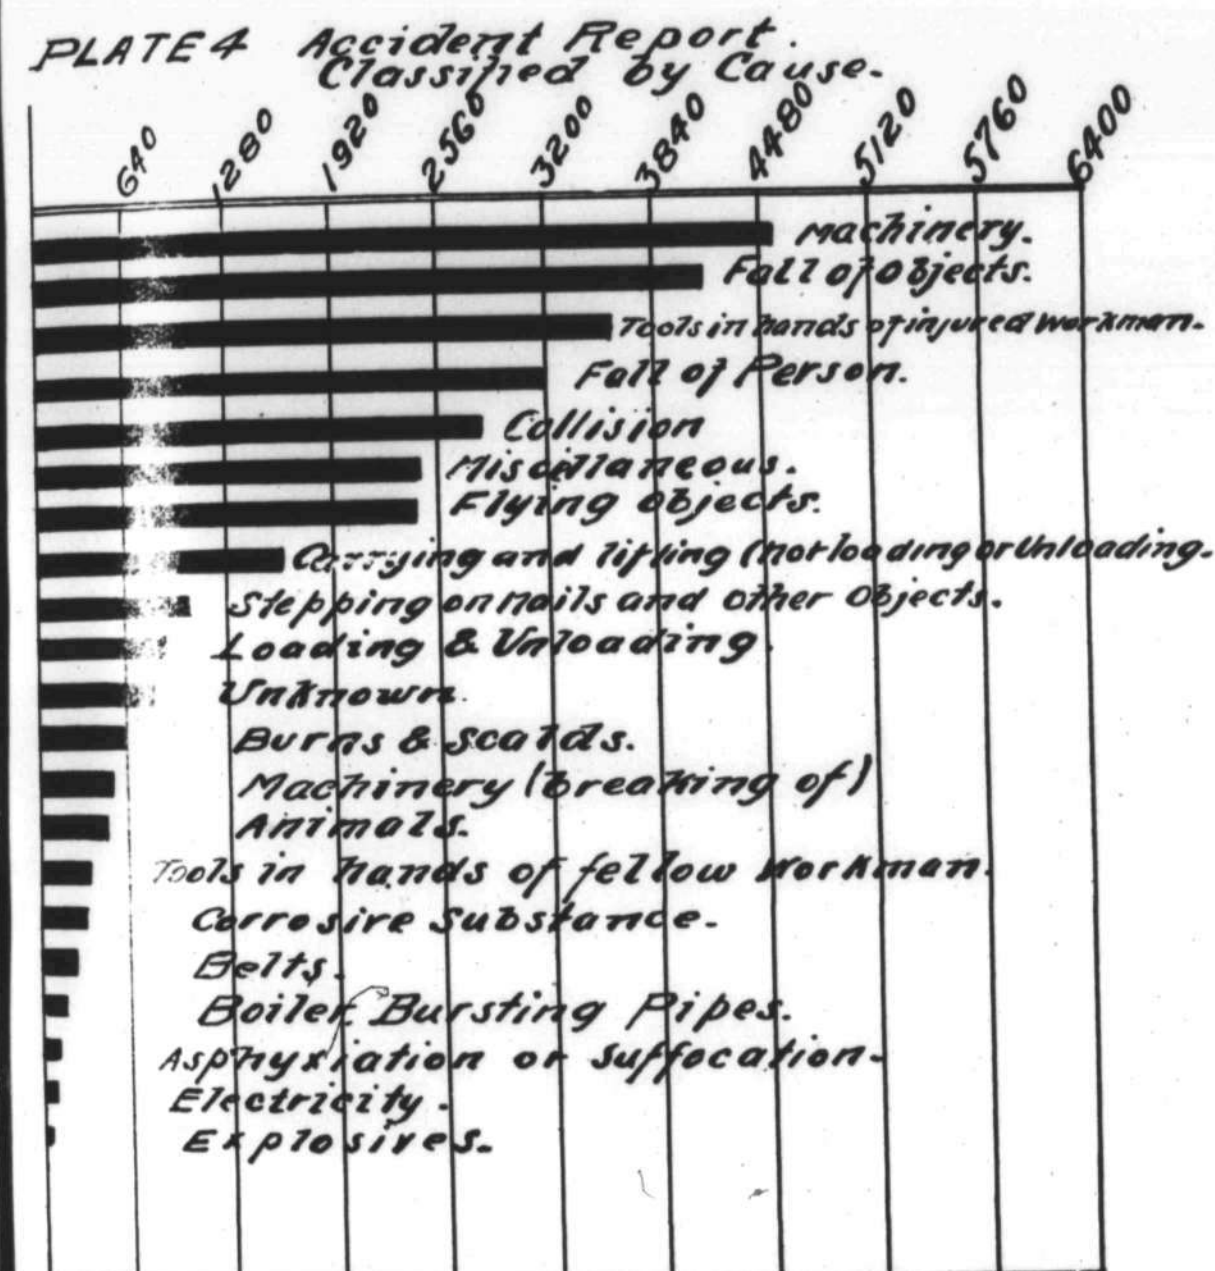 PLATE 4 Accident Report.
Classified by Cause.
640 1280 1920 2560 3200 3840 4480 5120 5760 6400
Machinery.
Fall of Objects.
Tools in hands of injured workman.
Fall of Person.
Collision
Miscellaneous.
Flying Objects.
Carrying and lifting (not loading or Unloading.
Stepping on nails and other Objects.
Loading & Unloading.
Unknown.
Burns & Scalds.
Machinery (breaking of)
Animals.
Tools in hands of fellow workman.
Corrosive Substance.
Belts.
Boiler Bursting Pipes.
Asphyxiation or Suffocation.
Electricity.
Explosives.